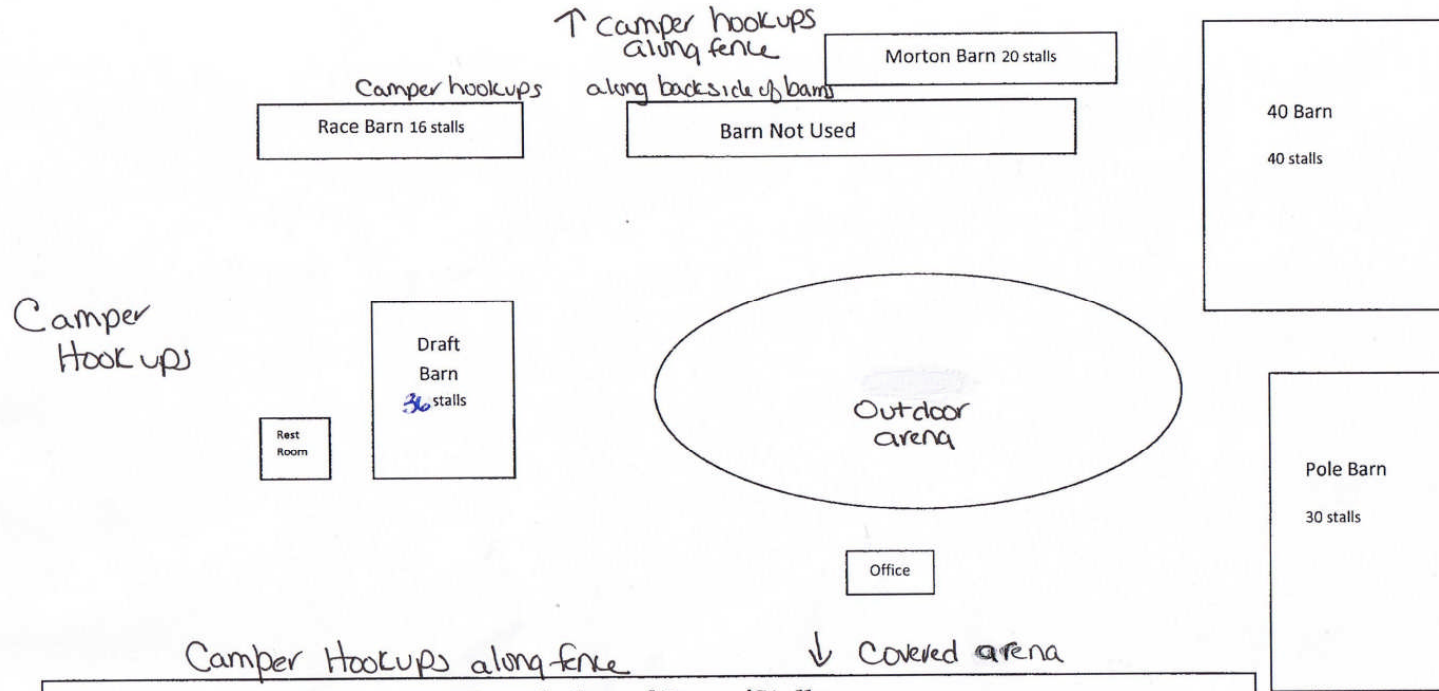 ↑ Camper hookups
along fence
Morton Barn 20 stalls
Camper hookups along backside of barns
Race Barn 16 stalls
Barn Not Used
40 Barn
40 stalls
Camper
Hookups
Draft
Barn
36 stalls
Rest
Room
Outdoor
arena
Pole Barn
30 stalls
Office
Camper Hookups along fence
↓ Covered arena